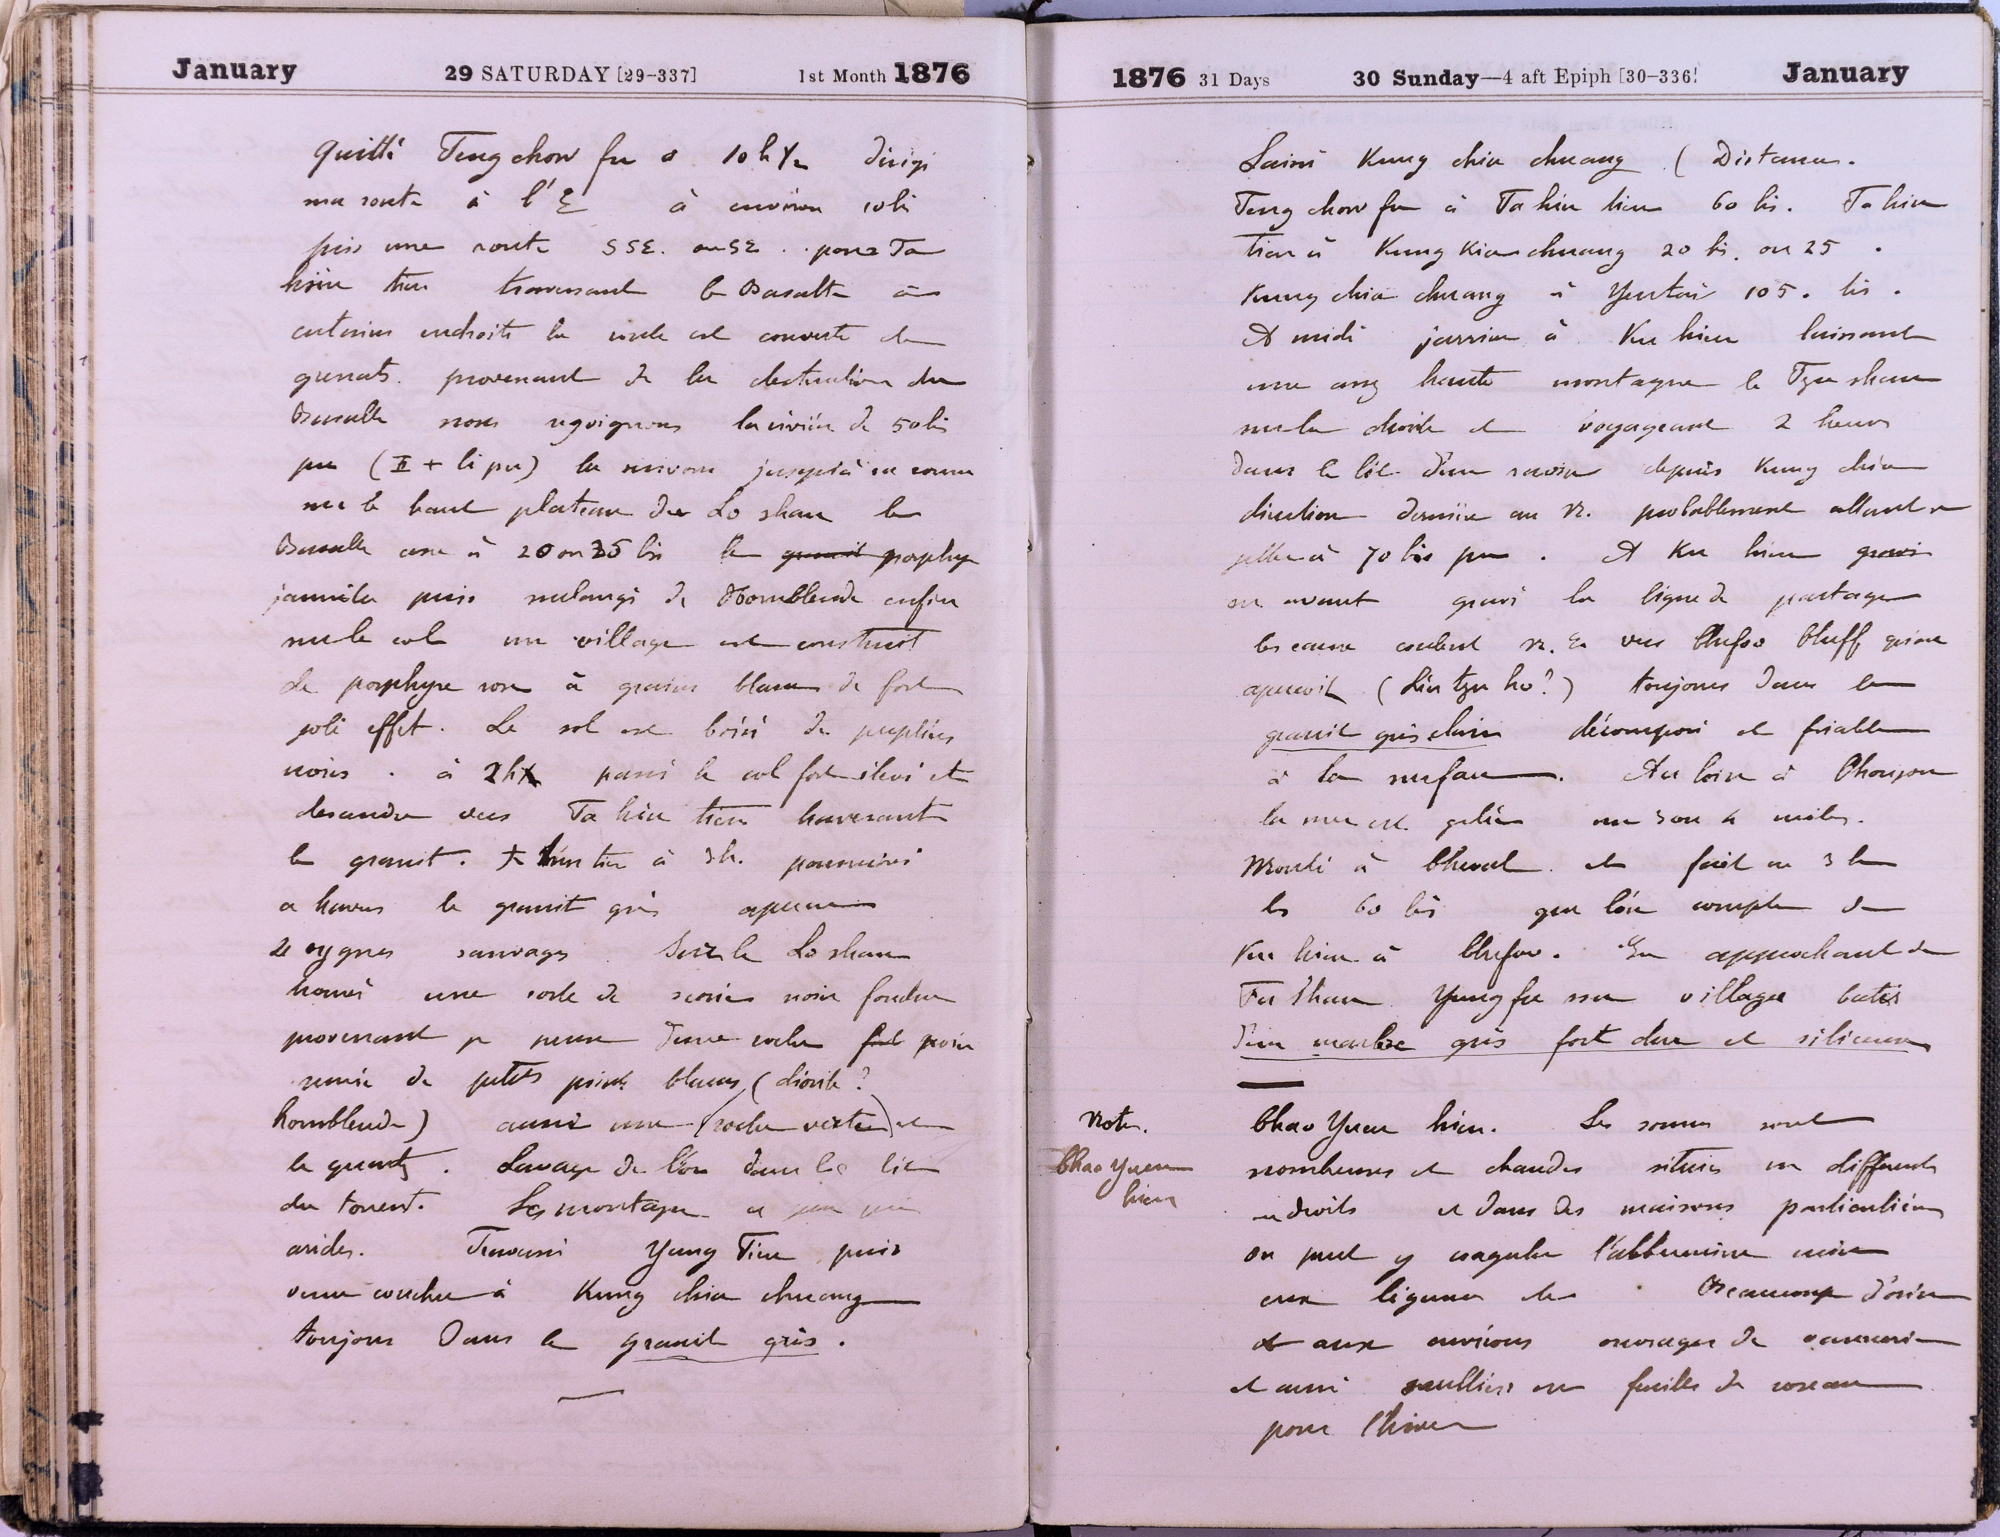 January 29 SATURDAY [29-337] 1st Month 1876
Quitté Teng chow fu à 10 h ½ dirigé
ma route à l'E à environ 10 li
puis une route SSE. ou SE. pour Ta
hsin tien traversant le Basalte à
certains endroits la route est couverte de
grenats. provenant de la destruction du
Basalte nous rejoignons la rivière de 50 lis
pu (II + li pu) la suivons jusqu'à sa source
sur le haut plateau du Lo shan le
Basalte cesse à 20 ou 25 lis le granit porphyre
jaunâtre puis mélangé de Hornblende enfin
sur le col un village est construit
de porphyre rose à grains blancs de fort
joli effet. Le sol est boisé de peupliers
noirs. à 2h passé le col fort élevé et
descendu vers Ta hsin tien traversant
le granit. Ta hsin tien à 3h. poursuivi
à travers le granit gris aperçu
4 cygnes sauvages. Sur le Lo shan
trouvé une sorte de scories noir fondue
provenant je pense d'une roche noire
semée de petits points blancs (diorite?
hornblende) aussi une (roche verte) et
le quartz. Lavage de l'or dans le lit
du torrent. Les montagnes
arides. Traversé Yang Tien puis
venu coucher à Kung chia chuang
toujours dans le granit gris.
1876 31 Days 30 Sunday—4 aft Epiph [30-336] January
Laissé Kung chia chuang (Distances.
Teng chow fu à Ta hsin tien 60 lis. Ta hsin
tien à Kung Kia chuang 20 lis. ou 25.
Kung chia chuang à Yentai 105. lis.
A midi j'arrive à Ku hien laissant
une assez haute montagne le Tzu shan
sur la droite et voyageant 2 heures
dans le lit d'une rivière depuis Kung chia
direction dernière au N. probablement allant se
jeter à 70 lis pu. A Ku hien
en avant gravi la ligne de partage
les eaux coulent N.E. vers Chefoo Bluff qu'on
aperçoit (Lin tzu ho?) toujours dans le
granit gris clair décomposé et friable
à la surface. Au loin à
la mer est gelée sur 3 ou 4 miles.
Monté à cheval et fait en 3 h
les 60 lis que l'on compte de
Ku hien à Chefoo. En approchant de
Fu shan Yung fu sur village bâtis
d'un marbre gris fort dur et siliceux
Note.
Chao Yuen
hien
Chao Yuen hien. Les sources sont
nombreuses et chaudes situées en différents
endroits et dans des maisons particulières
on peut y coaguler l'albumine
Beaucoup d'osier
et aux environs ouvrages de vannerie
et aussi souliers en feuilles de roseau
pour l'hiver